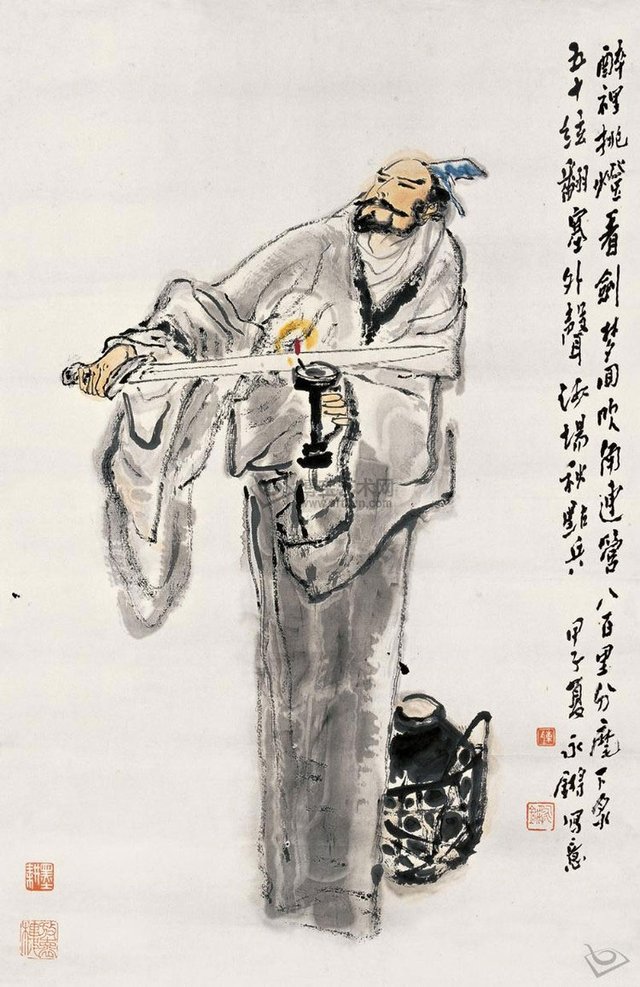 醉裡挑燈看劍梦回吹角連營八百里分麾下炙
五十絃翻塞外聲沙場秋點兵 甲子夏永鏘写意
墨耕